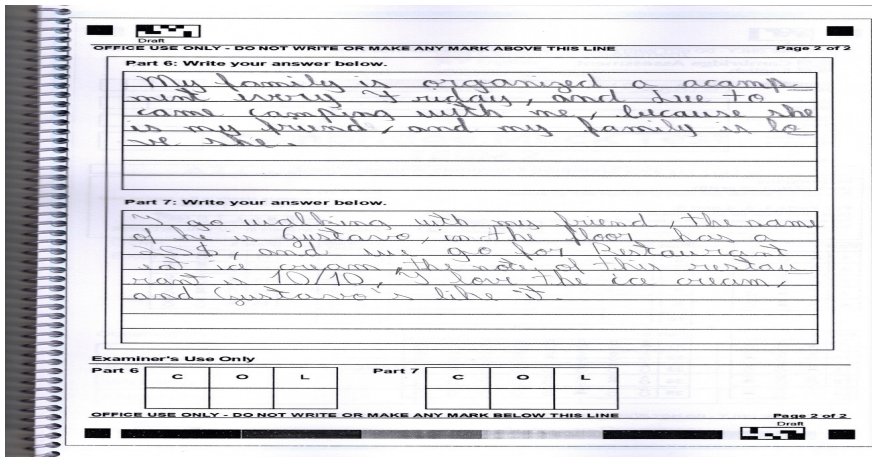 Draft
OFFICE USE ONLY - DO NOT WRITE OR MAKE ANY MARK ABOVE THIS LINE Page 2 of 2
Part 6: Write your answer below.
My family is organized a acamp
ment every Friday, and due to
came camping with me, because she
is my friend, and my family is lo
ve she.
Part 7: Write your answer below.
I go walking with my friend, the name
of he is Gustavo, in the floor has a
and we go for Restaurant
eat ice cream, the note of this restau
rant is 10/10, I love the ice cream,
and Gustavo's like it.
Examiner's Use Only
Part 6 C O L Part 7 C O L
OFFICE USE ONLY - DO NOT WRITE OR MAKE ANY MARK BELOW THIS LINE Page 2 of 2
Draft